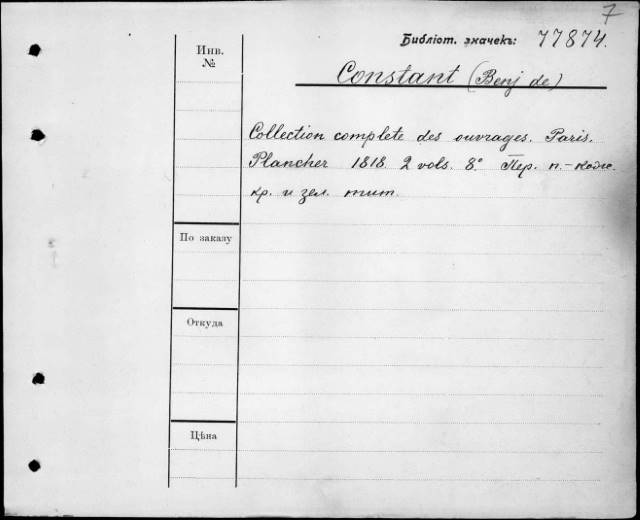 7
Библіот. значекъ: 77874.
Инв.
№
Constant (Benj de)
Collection complete des ouvrages. Paris.
Plancher 1818. 2 vols. 8° Пер. п.-кож.
кр. и зел. тит.
По заказу
Откуда
Цѣна